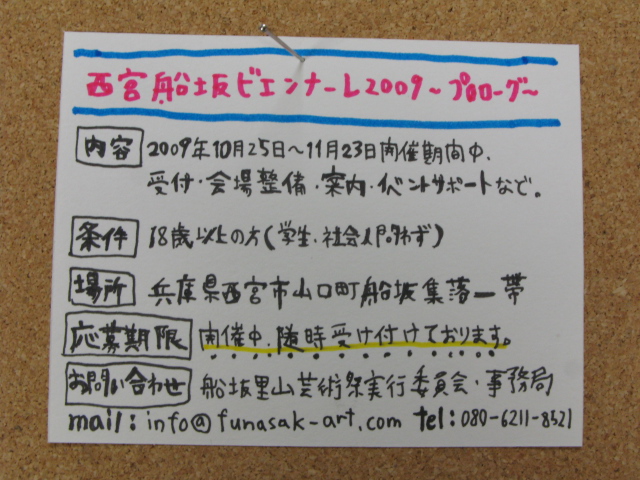 西宮船坂ビエンナーレ2009～プロローグ～
内容 2009年10月25日～11月23日開催期間中、
受付・会場整備・案内・イベントサポートなど。
条件 18歳以上の方(学生・社会人問わず)
場所 兵庫県西宮市山口町船坂集落一帯
応募期限 開催中、随時受け付けております。
お問い合わせ 船坂里山芸術祭実行委員会・事務局
mail:info@funasak-art.com tel:080-6211-8521